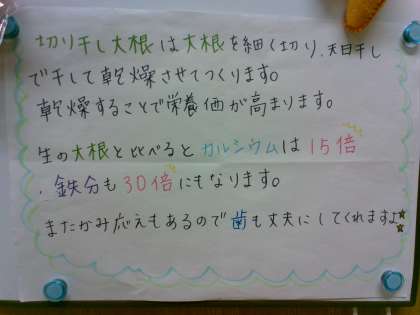 切り干し大根は大根を細く切り、天日干し
で干して乾燥させてつくります。
乾燥することで栄養価が高まります。
生の大根と比べるとカルシウムは15倍
、鉄分も30倍にもなります。
またかみ応えもあるので歯も丈夫にしてくれますよ